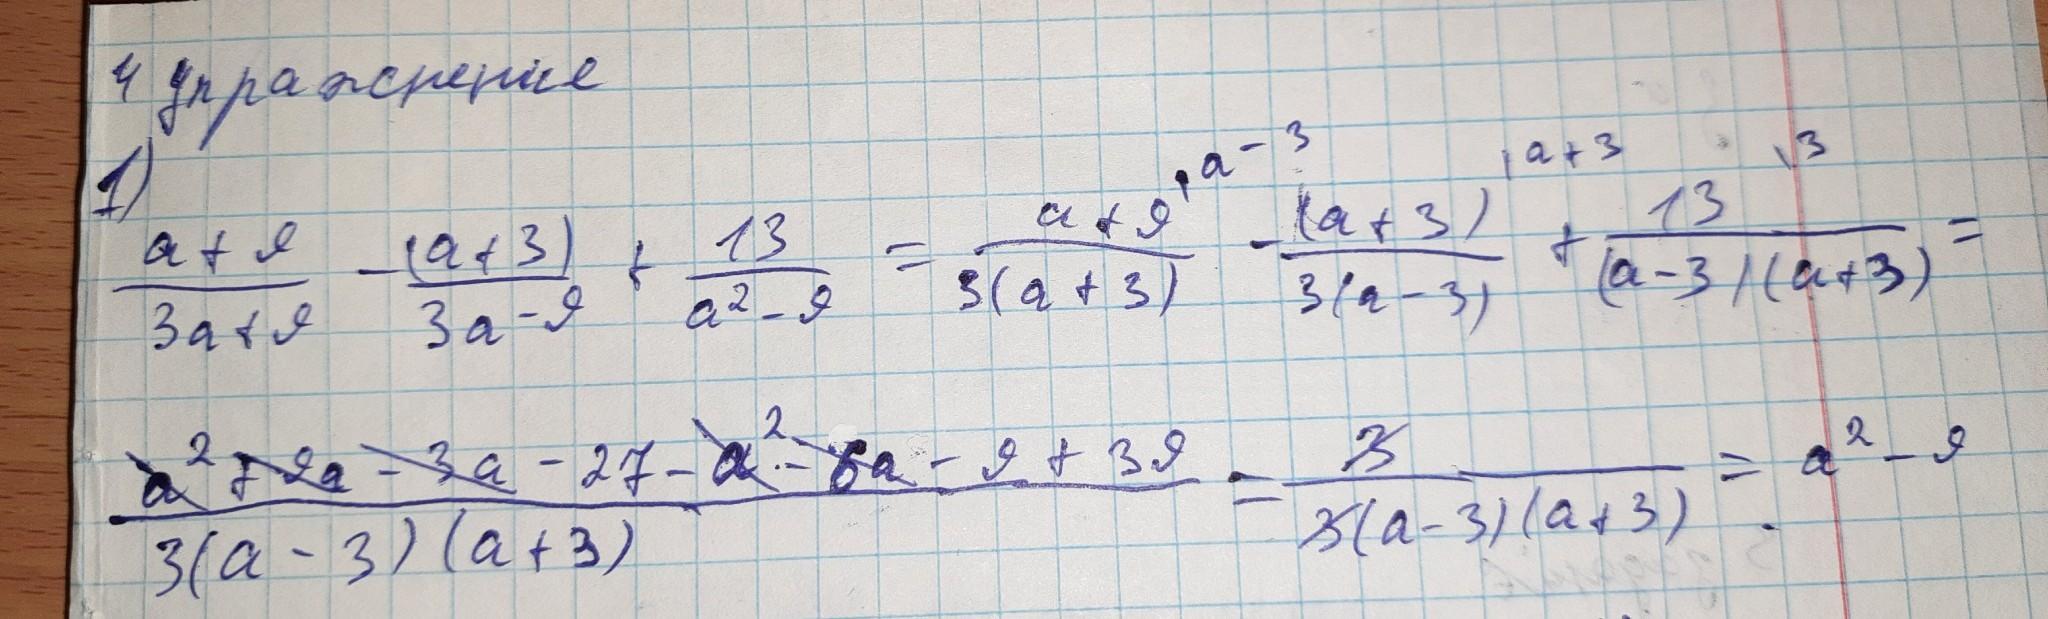 4 упражнение
1)
(a+9)/(3a+9) - (a+3)/(3a-9) + 13/(a²-9) = (a+9)/(3(a+3)) ·a-3 - (a+3)/(3(a-3)) ·a+3 + 13/((a-3)(a+3)) ·3 =
(a²+9a-3a-27-a²-6a-9+39)/(3(a-3)(a+3)) = 3/(3(a-3)(a+3)) = a²-9